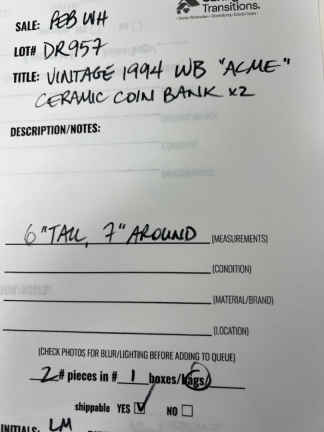 Transitions.
SALE: FEB WH
LOT# DR957
TITLE: VINTAGE 1994 WB "ACME"
CERAMIC COIN BANK x2
DESCRIPTION/NOTES:
6" TALL, 7" AROUND (MEASUREMENTS)
(CONDITION)
(MATERIAL/BRAND)
(LOCATION)
(CHECK PHOTOS FOR BLUR/LIGHTING BEFORE ADDING TO QUEUE)
2 # pieces in # 1 boxes/bags/
shippable YES ☑ NO ☐
INITIALS: LM